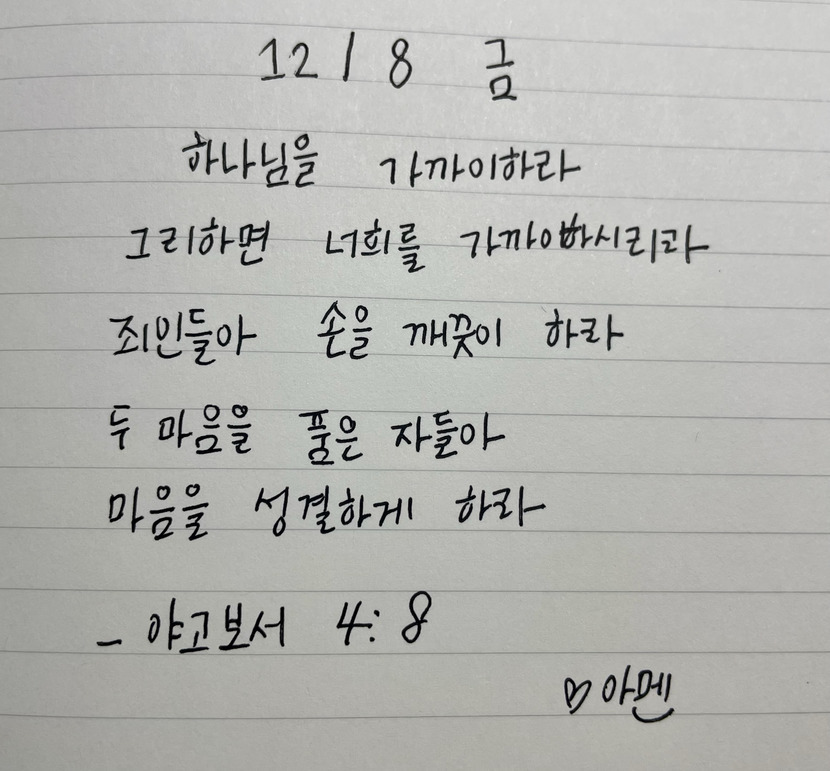 12 / 8 금
하나님을 가까이하라
그리하면 너희를 가까이하시리라
죄인들아 손을 깨끗이 하라
두 마음을 품은 자들아
마음을 성결하게 하라
- 야고보서 4:8
♡아멘